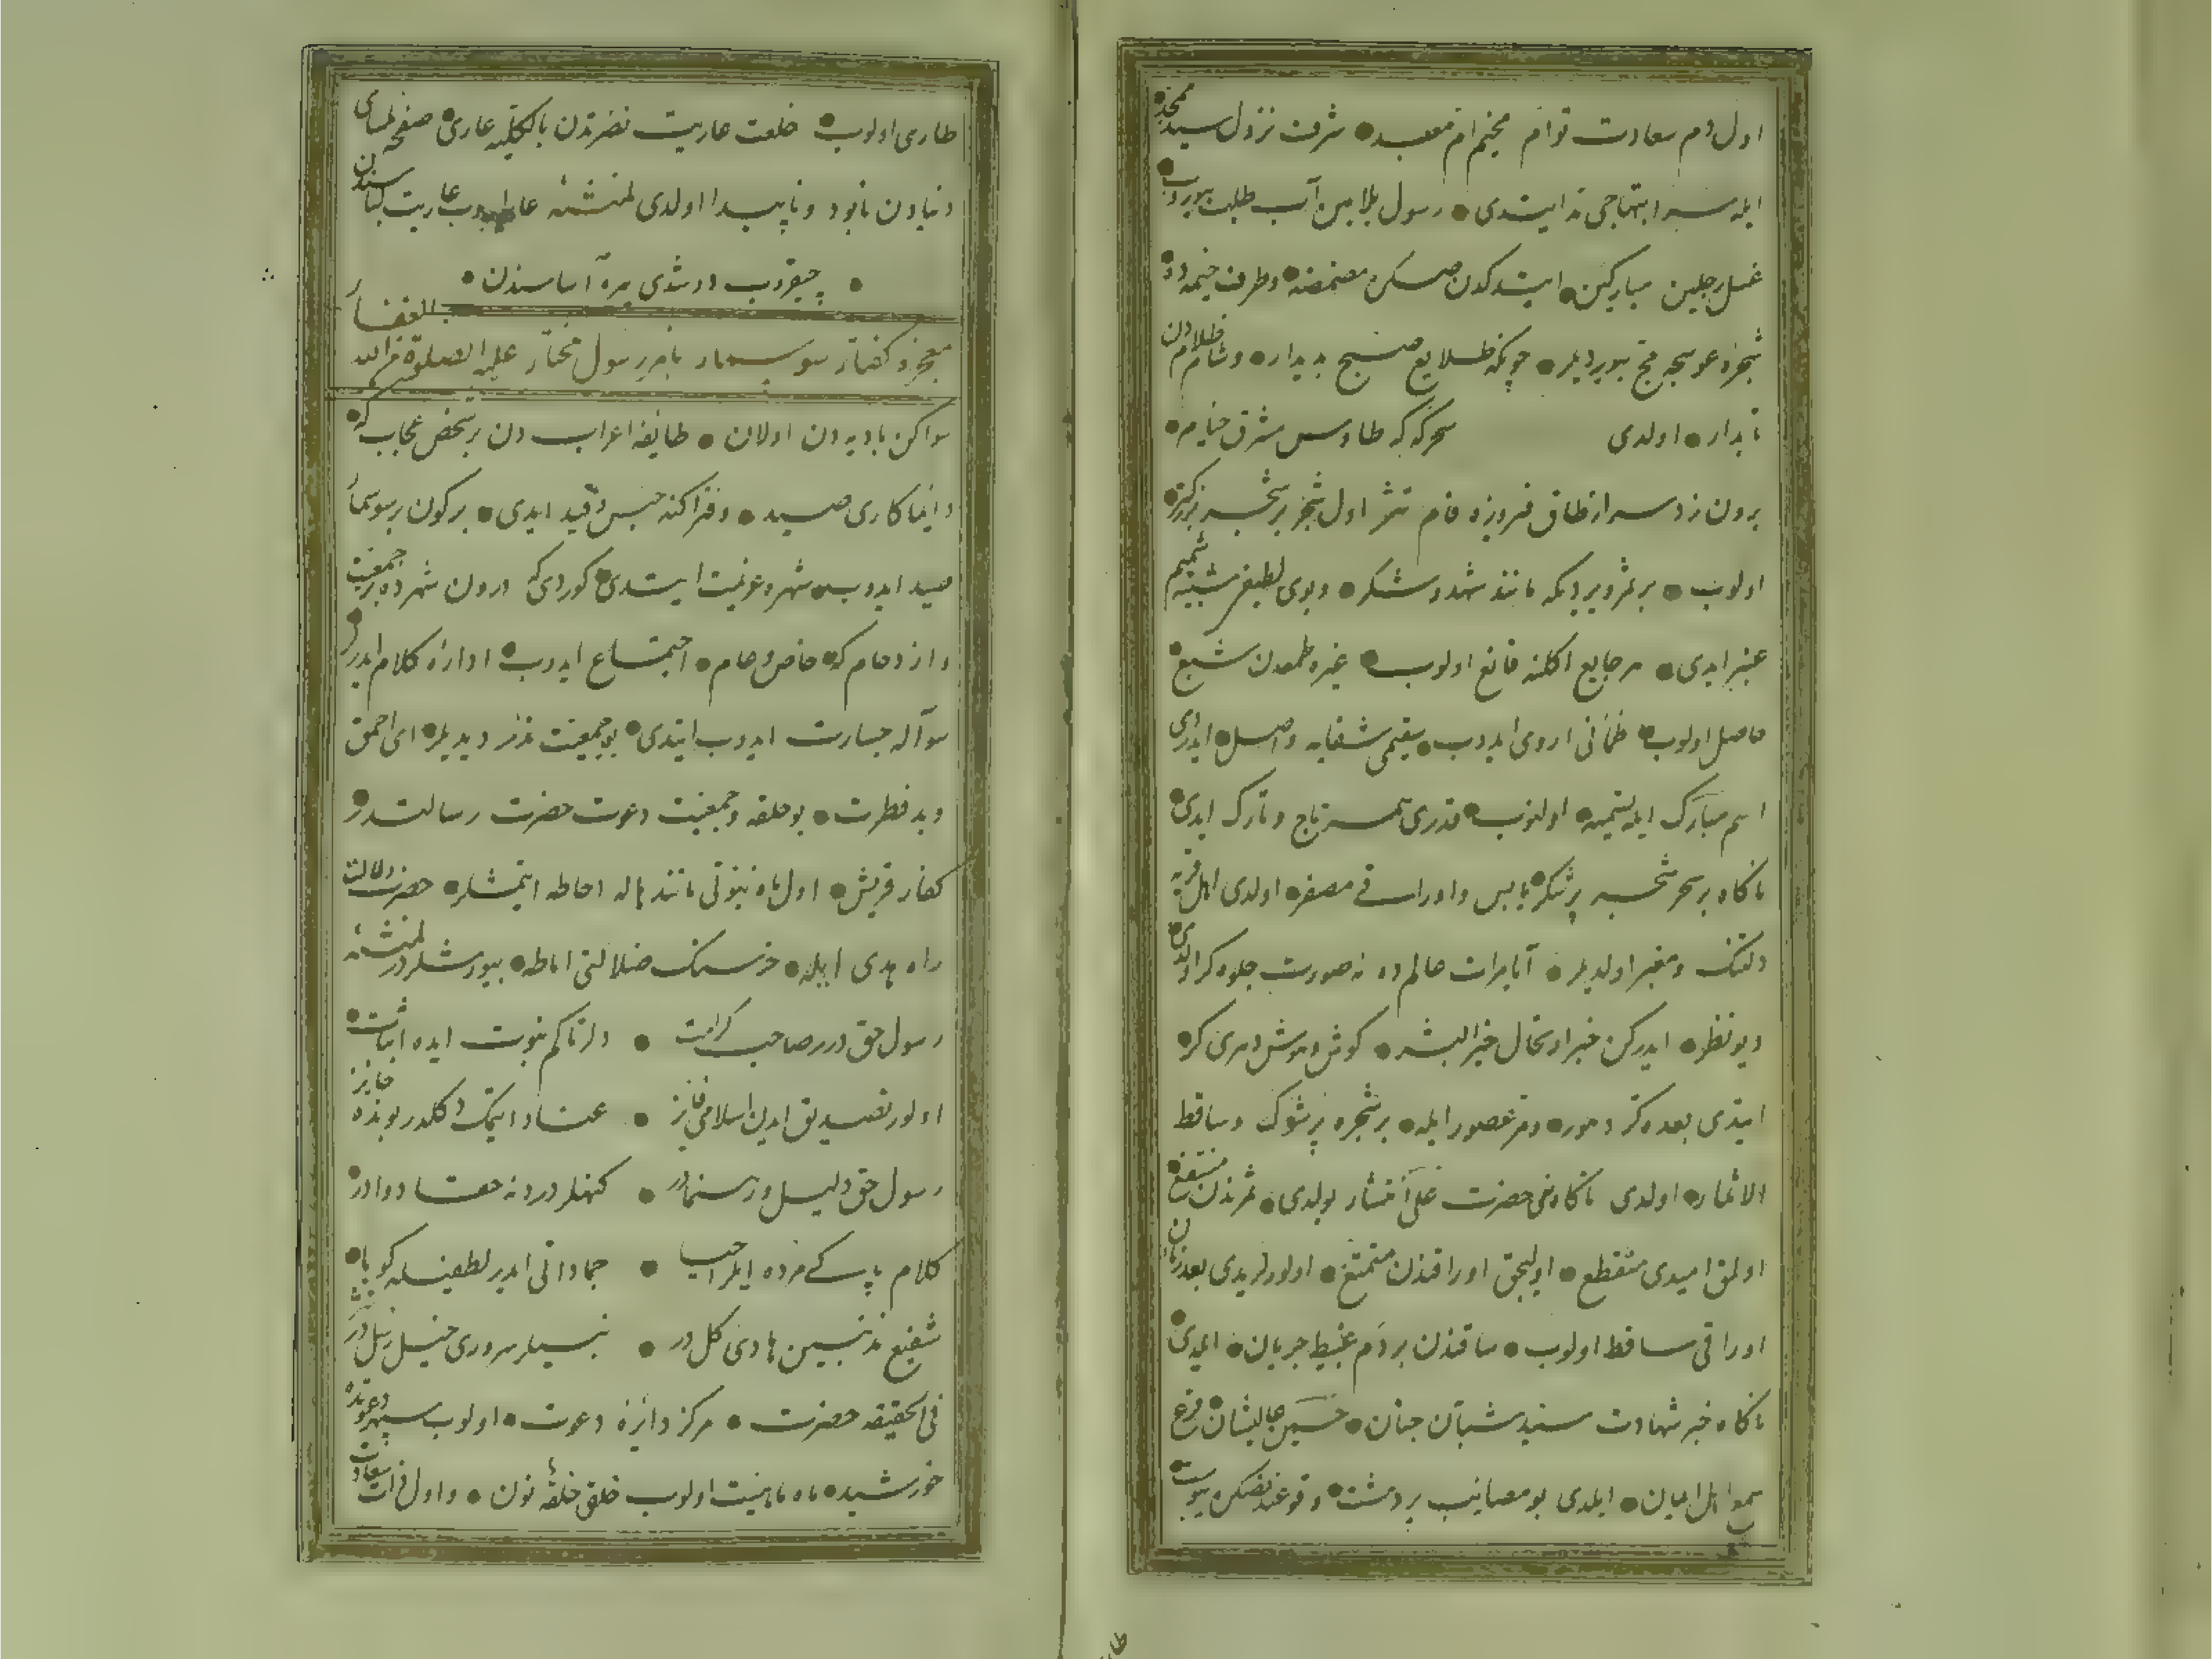 اول دم سعادت توأم مخیم ام معبد شرف نزول سید
ایله سر ابتهاجی ایتدی رسول بلامین آب طلب بیوروب
غسل رجلین مبارکین ایتدکدن صکره مضمضه و طرف خیمه ده
شجره عوسجه مج بیوردیلر چونکه طلایع صبح بدیدار و شام ظلامدن
تابدار اولدی سحرکه که طاوس مشرق خیام
برون زد سر از طاق فیروزه فام اول شجر بر شجر بزرکتر
اولوب بر ثمر ویردیکه مانند شهد و شکر و بوی لطیفی شمیم
عنبر ایدی هر جایع اکلنه قانع اولوب غیره طعمدن شبع
حاصل اولوب ظمآنی اروی ایدوب سقیمی شفایه واصل ایدر ایدی
اسم مبارک ایله تسمیه اولنوب قدری همسر تاج و تارک ایدی
ناکاه بر سحر شجر پر شکر یابس و اوراقی مصفر اولدی اهل قریه
دلتنک و مغبر اولدیلر آیا مرات عالم ده نه صورت جلوه کر اولدی
دیو نظر ایدرکن خبر ارتحال خیر البشر کوش و هوش دهری کر
ایتدی بعده کر دهور و مر عصور ایله بر شجره پر شوک و ساقط
الاثمار اولدی ناکاه نعی حضرت علی انتشار بولدی ثمرندن منتفع
اولمق امیدی منقطع اولیجق اوراقندن متمتع اولورلردی بعد زمان
اوراقی ساقط اولوب ساقندن بر دم عبیط جریان ایلدی
ناکاه خبر شهادت سید شبان جنان حسین عالیشان قرع
سمع اهل ایمان ایلدی بو مصائب پر دهشت وقوعندنصکره یبوست
طاری اولوب خلعت عاریت نضرتدن بالکلیه عاری صفحه
دنیادن نابود و ناپیدا اولدی لمنشئه عاریت لباسندن
چیقروب دوشدی یره آساسندن
معجزه کفتار سوسمار بامر رسول مختار علیه الصلوة
سواکن بادیه دن اولان طایفه اعراب دن بر شخص عجاب که
دائما کاری صید و فتراکنه حبس و قید ایدی بر کون بر سوسمار
صید ایدوب شهره عزیمت ایتدی کوردی که درون شهر ده بر جمعیت
و ازدحام که خاص و عام اجتماع ایدوب اداره کلام ایدرلر
سؤاله جسارت ایدوب ایتدی بو جمعیت نه در دیدیلر ای احمق
و بد فطرت بو حلقه و جمعیت دعوت حضرت رسالتدر
کفار قریش اول ماه نبوتی مانند هاله احاطه ایتمشلر حضرت دلالت
راه هدی ایله خرسنک ضلالتی اماطه بیورمشلردر لمنشئه
رسول حق درر صاحب کرامت دلر تا کم نبوت ایده اثبات
اولور تصدیق ایدن اسلامی فائز عناد ایتمک دکلدر بونده جائز
رسول حق دلیل و رهنمادر کنهلر دردنه حقا دوادر
کلام پاکی مرده ایلر احیا جماداتی ایدر لطفیله کویا
شفیع مذنبین هادی کل در نبیلر سروری خیل رسل در
فی الحقیقه حضرت مرکز دائره دعوت اولوب
خورشید ماه ماهیت اولوب خلق